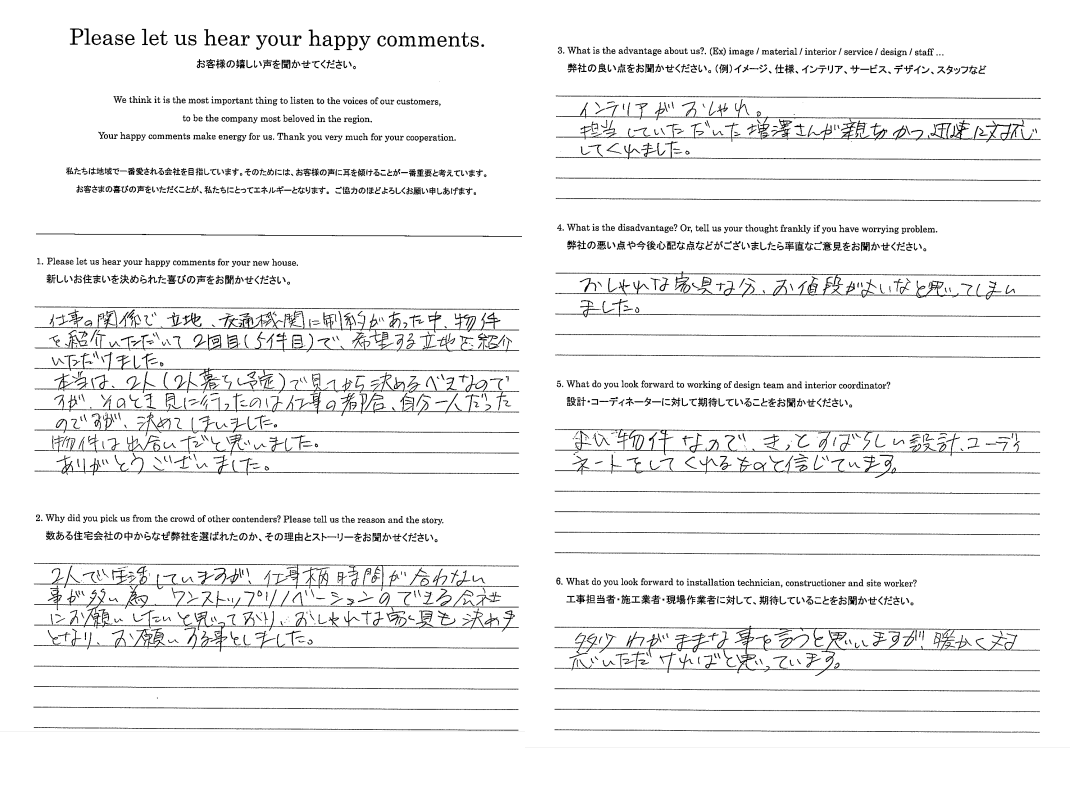 Please let us hear your happy comments.
お客様の嬉しい声を聞かせてください。
We think it is the most important thing to listen to the voices of our customers,
to be the company most beloved in the region.
Your happy comments make energy for us. Thank you very much for your cooperation.
私たちは地域で一番愛される会社を目指しています。そのためには、お客様の声に耳を傾けることが一番重要と考えています。
お客さまの喜びの声をいただくことが、私たちにとってエネルギーとなります。 ご協力のほどよろしくお願い申しあげます。
1. Please let us hear your happy comments for your new house.
新しいお住まいを決められた喜びの声をお聞かせください。
仕事の関係で、立地、交通機関に制約があった中、物件
を紹介いただいて2回目(5件目)で、希望する立地を紹介
いただけました。
本当は、2人(2人暮らし予定)で見てから決めるべきなので
すが、そのとき見に行ったのは仕事の都合、自分一人だった
のですが、決めてしまいました。
物件は出合いだと思いました。
ありがとうございました。
2. Why did you pick us from the crowd of other contenders? Please tell us the reason and the story.
数ある住宅会社の中からなぜ弊社を選ばれたのか、その理由とストーリーをお聞かせください。
2人で生活していますが、仕事柄時間が合わない
事が多い為、ワンストップリノベーションのできる会社
にお願いしたいと思っており、おしゃれな家具も決め手
となり、お願いする事としました。
3. What is the advantage about us?. (Ex) image / material / interior / service / design / staff ...
弊社の良い点をお聞かせください。(例)イメージ、仕様、インテリア、サービス、デザイン、スタッフなど
インテリアがおしゃれ。
担当していただいた増澤さんが親切かつ、迅速に対応
してくれました。
4. What is the disadvantage? Or, tell us your thought frankly if you have worrying problem.
弊社の悪い点や今後心配な点などがございましたら率直なご意見をお聞かせください。
おしゃれな家具な分、お値段がよいなと思ってしまい
ました。
5. What do you look forward to working of design team and interior coordinator?
設計・コーディネーターに対して期待していることをお聞かせください。
よい物件なので、きっとすばらしい設計、コーディ
ネートをしてくれるものと信じています。
6. What do you look forward to installation technician, constructioner and site worker?
工事担当者・施工業者・現場作業者に対して、期待していることをお聞かせください。
多少わがままな事を言うと思いますが、暖かく対
応いただければと思っています。